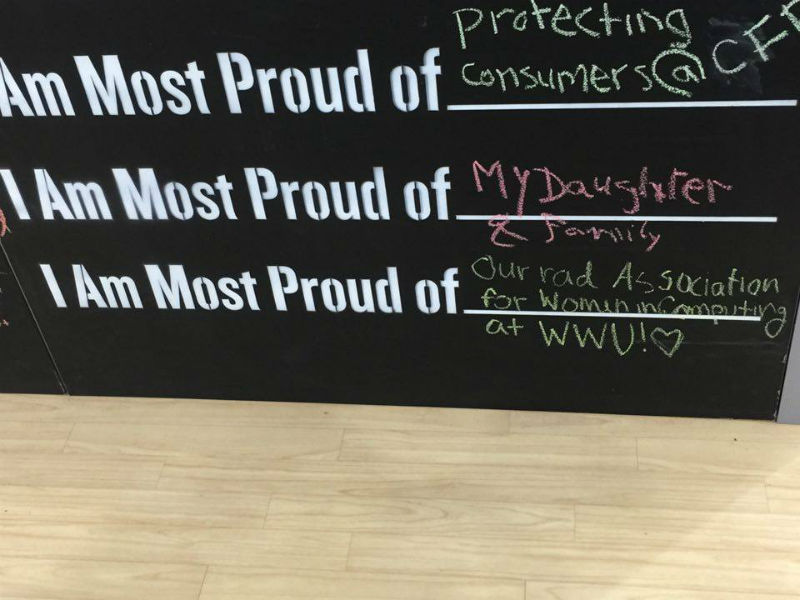 Protecting
Am Most Proud of consumers@CFP
I Am Most Proud of My Daughter
& Family
I Am Most Proud of Our rad Association
for Women in Computing
at WWU!♡